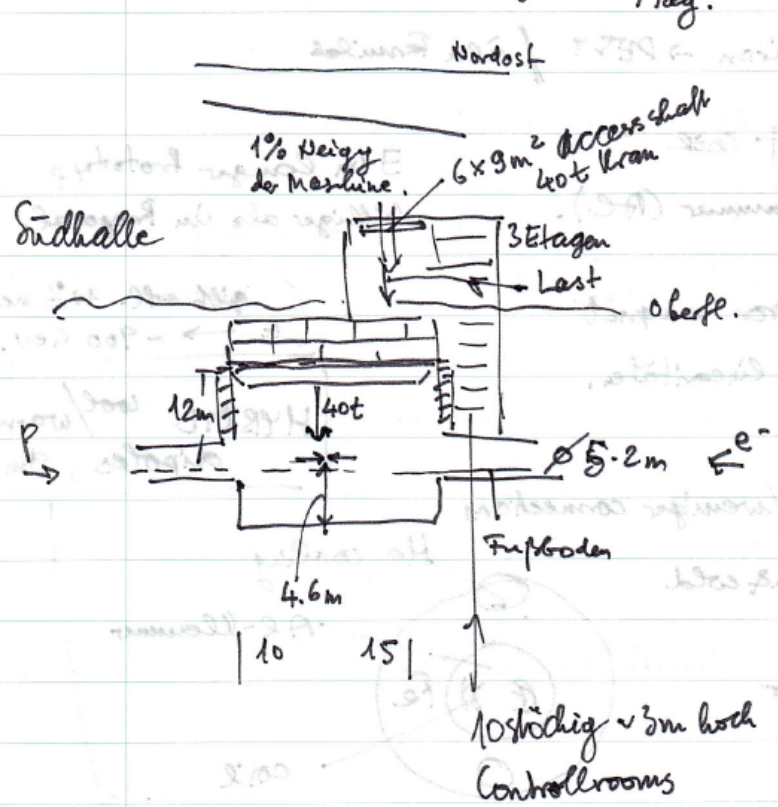 Nordost
1% Neigg
der Maschine.
6x9m² Access shaft
40t Kran
Südhalle
3 Etagen
Last
Oberfl.
12m
40t
P
Ø 5.2m
e⁻
Fußboden
4.6m
10
15
10stöckig ~3m hoch
Controllrooms